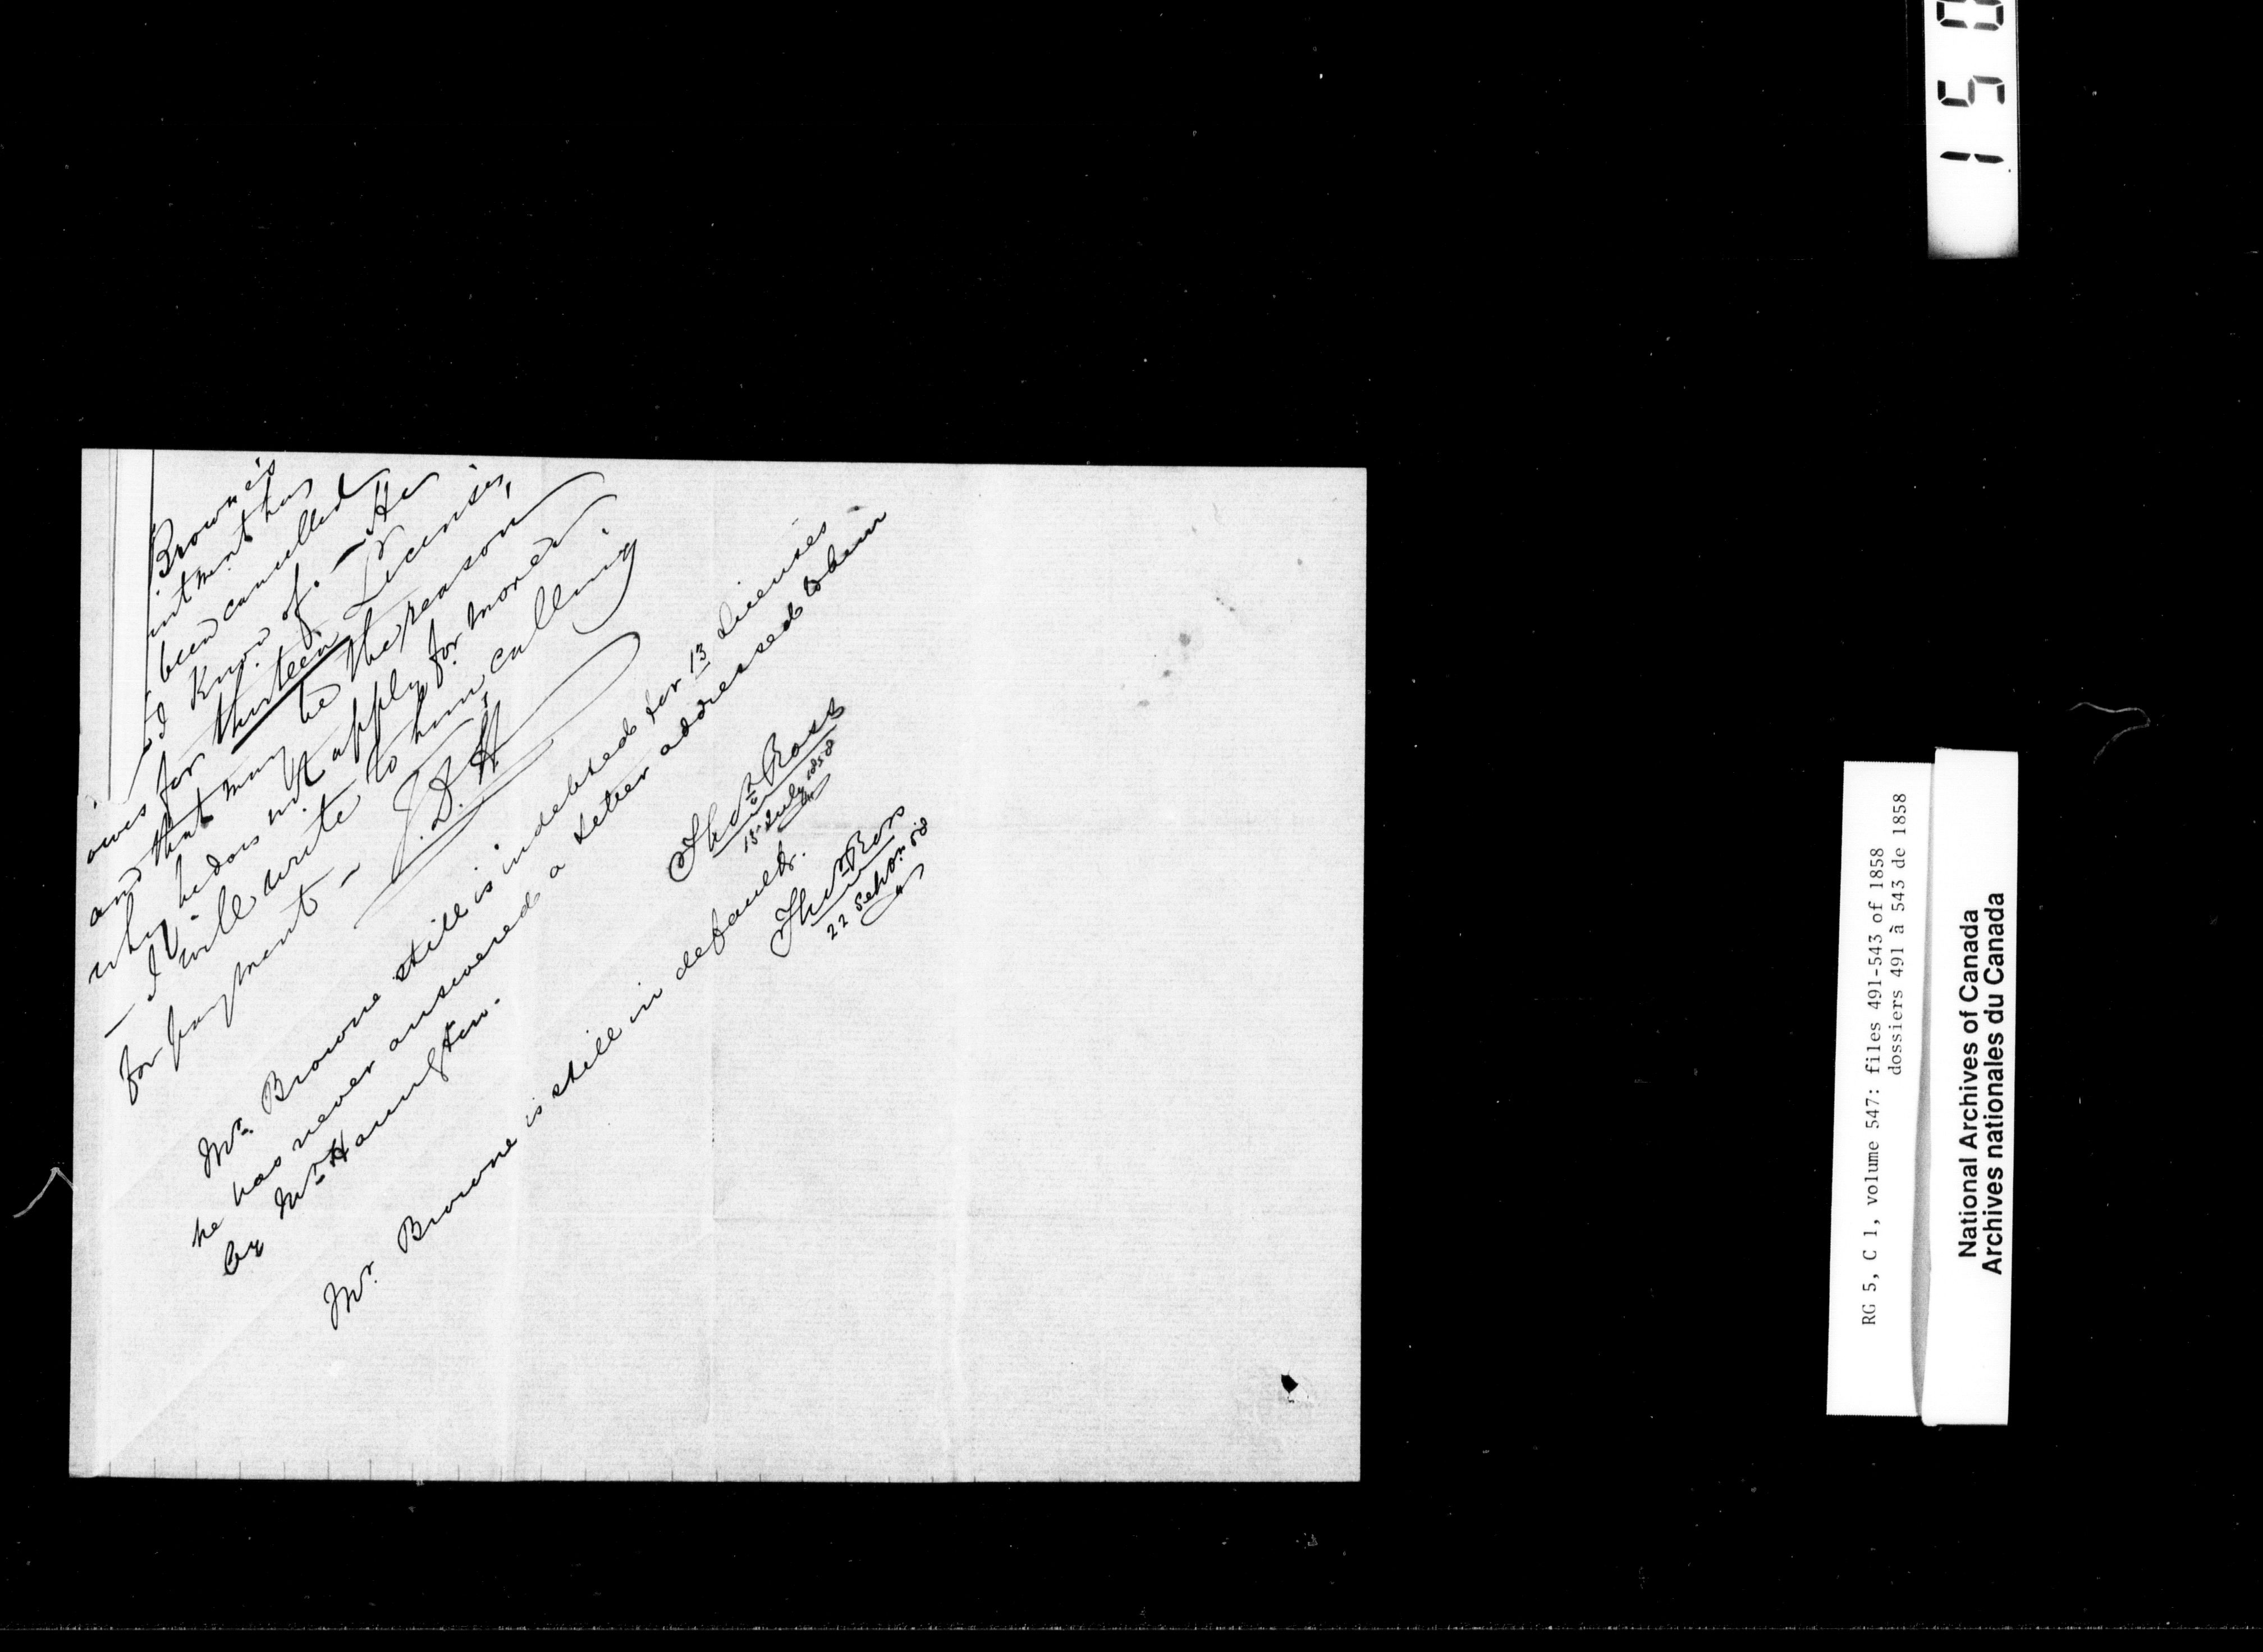 Brown's
intment has
been cancelled
I know of. — He
owes for thirteen Licenses,
and that may be the reason
why he does not apply for more.
— I will write to him, calling
for payment —
J.D.H
Mr. Browne still is indebted for 13 Licenses
he has never answered a Letter addressed to him
by Mr Haughton.
Thos Ross
15 July 1858
Mr. Browne is still in default.
Thos Ross
22 Septr. 58
150
RG 5, C 1, volume 547: files 491-543 of 1858
dossiers 491 à 543 de 1858
National Archives of Canada
Archives nationales du Canada